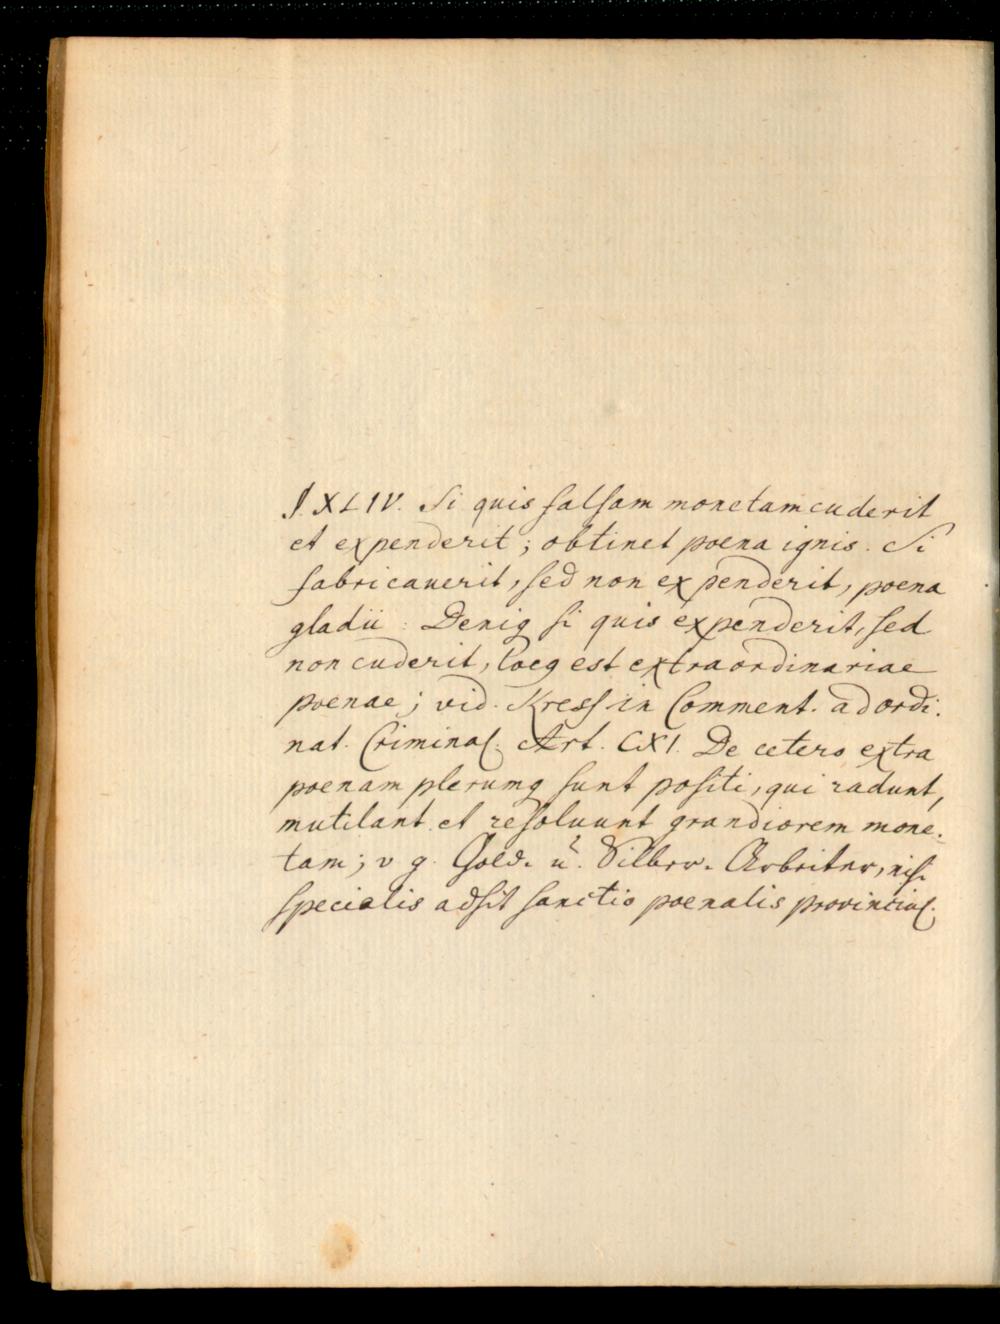 §. XLIV. Si quis falsam monetam cuderit
et expenderit; obtinet poena ignis. Si
fabricauerit, sed non expenderit, poena
gladii: Deniq si quis expenderit, sed
non cuderit, locq est extraordinariae
poenae; vid. Kress in Comment. ad ordi:
nat. Criminal. Art. CXI. De cetero extra
poenam plerumq sunt positi, qui radunt,
mutilant et resoluunt grandiorem mone:
tam; v g. Gold. u. Silber. Arbeiter, nisi
specialis adsit sanctio poenalis provincial.